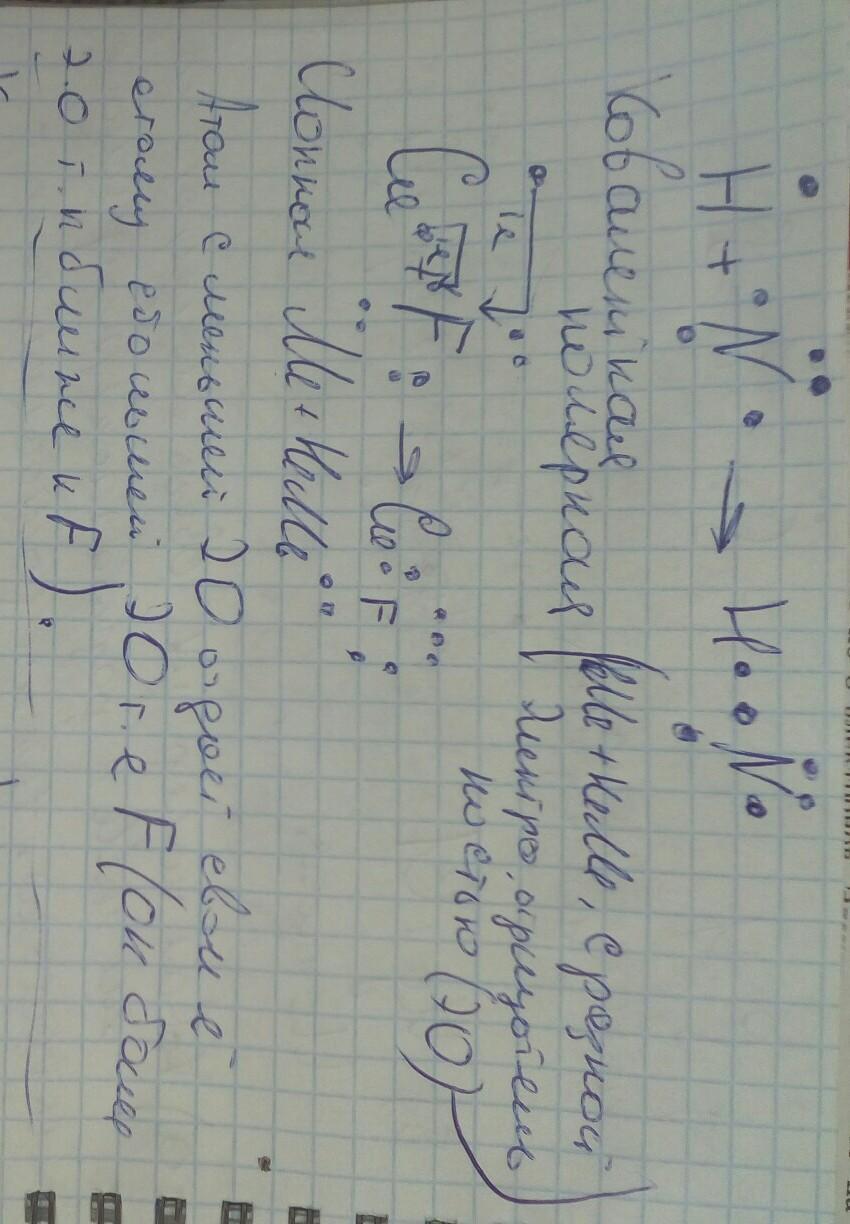 H + N → H N
Ковалентная
полярная (неМе + НеМе, с разной
электро, отрицатель
ностью (ЭО)
1e
Ca F → Ca F
Ионная Ме + НеМе
Атом с меньшей ЭО отдает свои ē
стому с большей ЭО т.е F (он более
э.о т.к ближе к F).